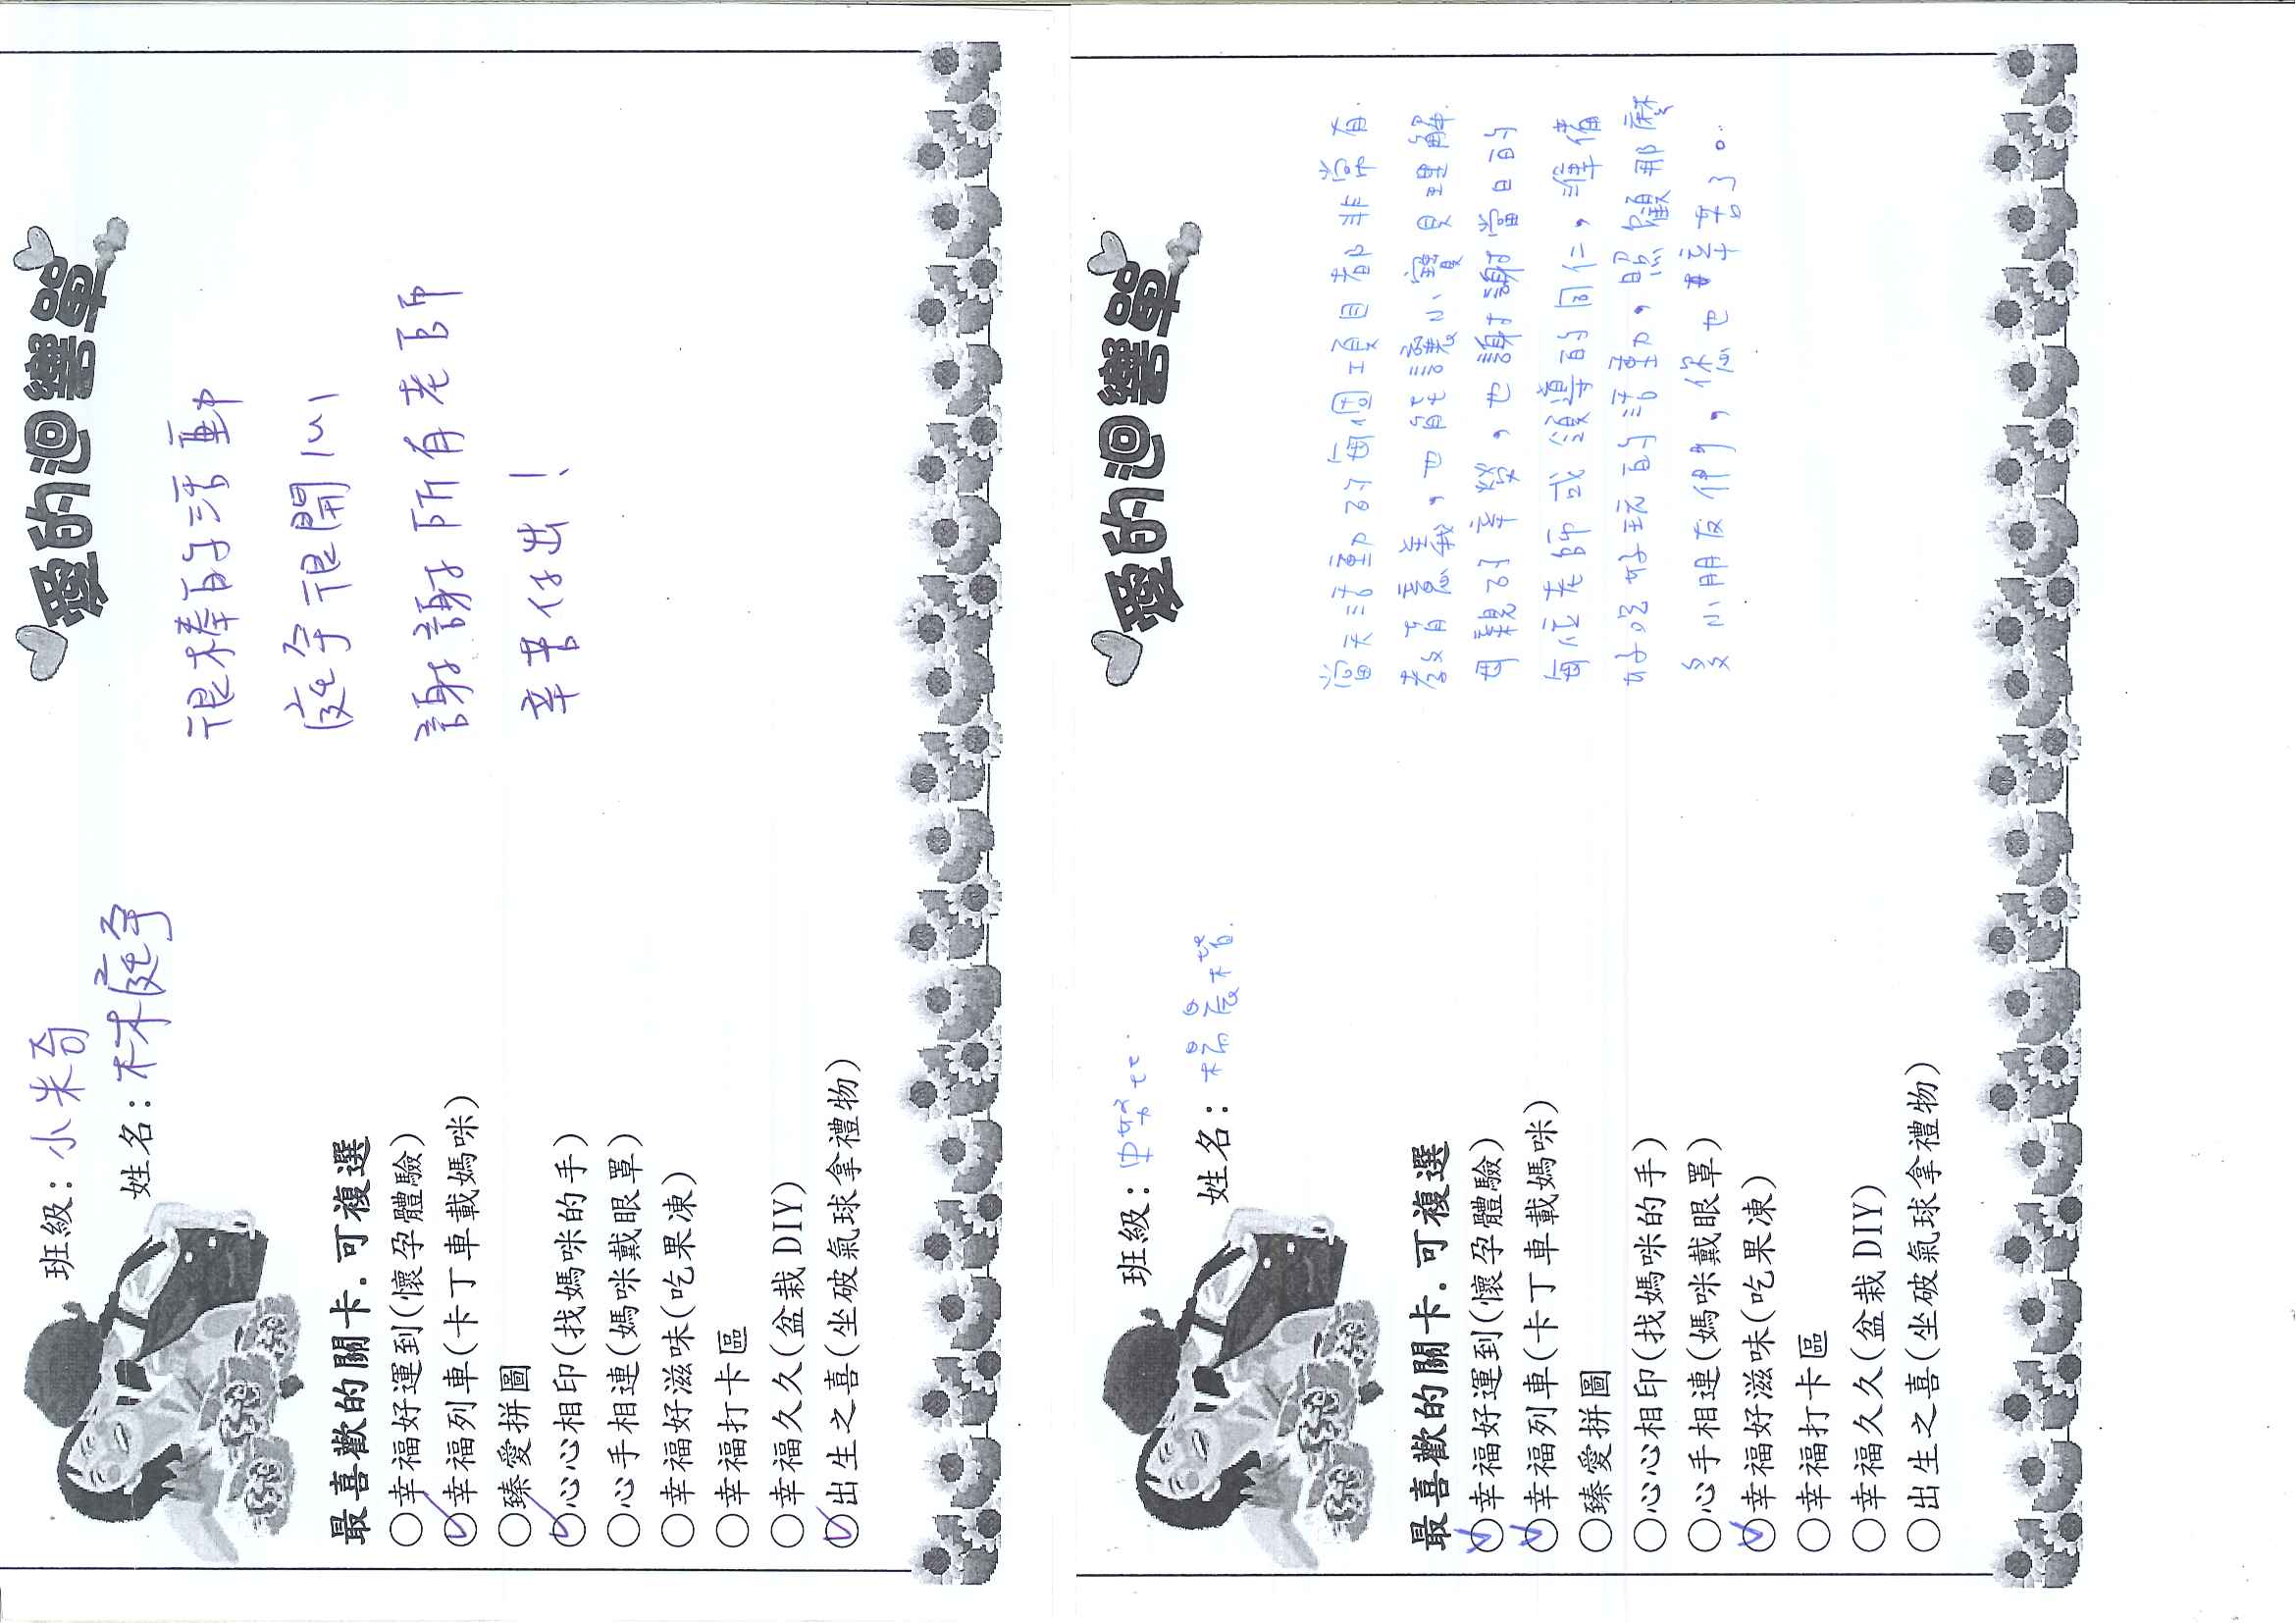 愛的迴響單
班級：小米奇
姓名：林庭孕
很棒的活動
庭孕很開心
謝謝所有老師
辛苦付出！
最喜歡的關卡.可複選
○幸福好運到(懷孕體驗)
○幸福列車(卡丁車載媽咪)
○臻愛拼圖
○心心相印(找媽咪的手)
○心手相連(媽咪戴眼罩)
○幸福好滋味(吃果凍)
○幸福打卡區
○幸福久久(盆栽DIY)
○出生之喜(坐破氣球拿禮物)
愛的迴響單
班級：
姓名：楊宸楷
當天活動的每個項目都非常有
教育意義，也能讓小寶貝理解
母親的辛勞，也謝謝當日的
每位老師或領導的同仁，準備
好吃好玩的活動，照顧那麼
多小朋友們，您也辛苦了。
最喜歡的關卡.可複選
○幸福好運到(懷孕體驗)
○幸福列車(卡丁車載媽咪)
○臻愛拼圖
○心心相印(找媽咪的手)
○心手相連(媽咪戴眼罩)
○幸福好滋味(吃果凍)
○幸福打卡區
○幸福久久(盆栽DIY)
○出生之喜(坐破氣球拿禮物)